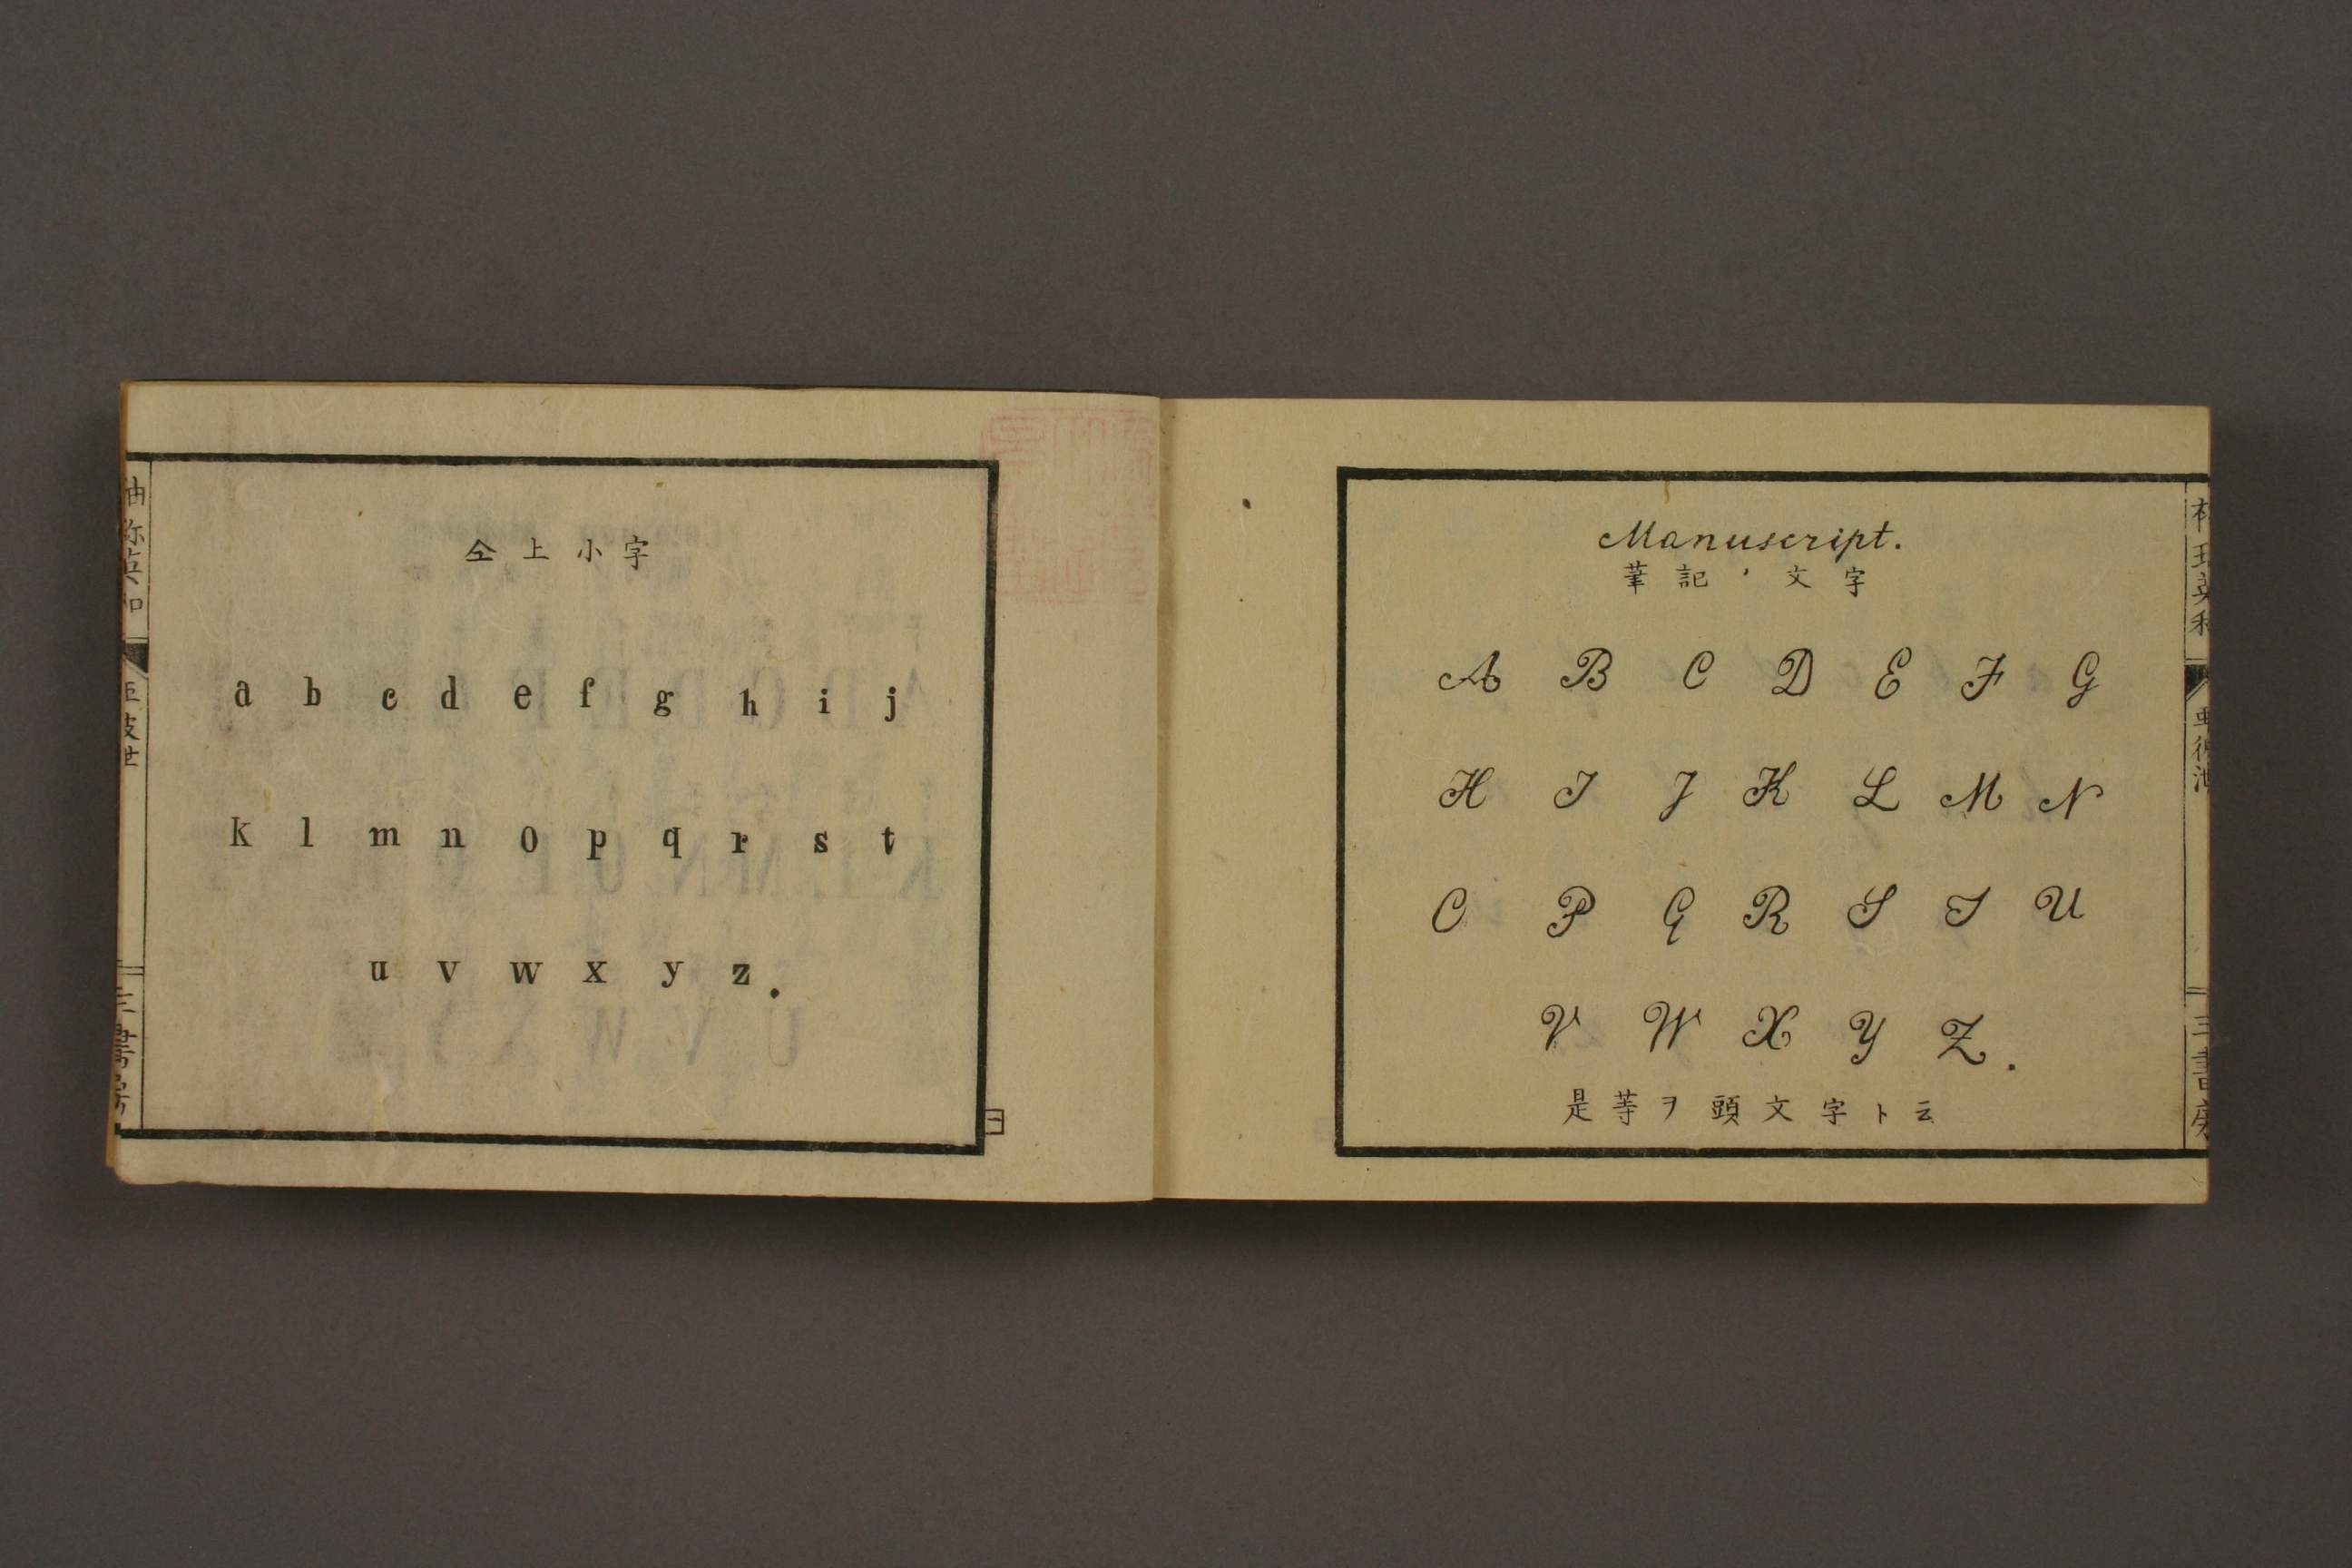 仝上小字
a b c d e f g h i j
k l m n o p q r s t
u v w x y z.
Manuscript.
筆記ノ文字
A B C D E F G
H I J K L M N
O P Q R S T U
V W X Y Z.
是等ヲ頭文字ト云